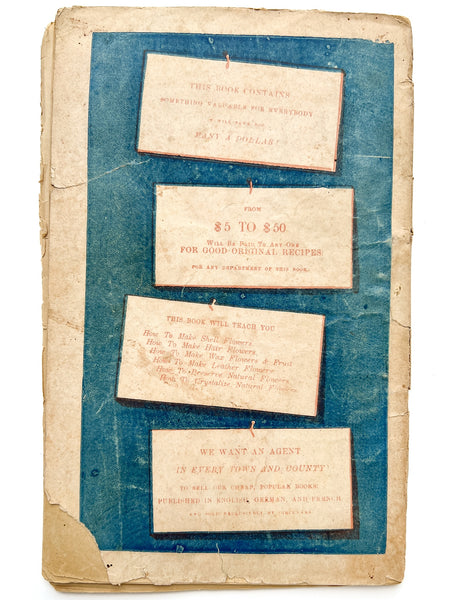 THIS BOOK CONTAINS
SOMETHING VALUABLE FOR EVERYBODY
WILL SAVE YOU
MANY A DOLLAR!
FROM
$5 TO $50
WILL BE PAID TO ANY ONE
FOR GOOD ORIGINAL RECIPES
FOR ANY DEPARTMENT OF THIS BOOK.
THIS BOOK WILL TEACH YOU
How To Make Shell Flowers
How To Make Hair Flowers
How To Make Wax Flowers & Fruit
How To Make Leather Flowers
How To Preserve Natural Flowers
How To Crystalize Natural Flowers
WE WANT AN AGENT
IN EVERY TOWN AND COUNTY
TO SELL OUR CHEAP, POPULAR BOOKS,
PUBLISHED IN ENGLISH, GERMAN, AND FRENCH,
AND SOLD EXCLUSIVELY BY